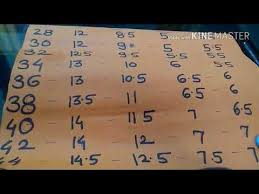 Made with KINEMASTER
28 12 8.5 5
30 12 9 5 5.5
32 12.5 9.5 5.5 5.5
34 13 10 6 5.5
36 13 10.5 6.5 6
38 13.5 11 6.5 6
40 14 11.5 7 6.5
14 12 7 7
14.5 12.5 7.5 7